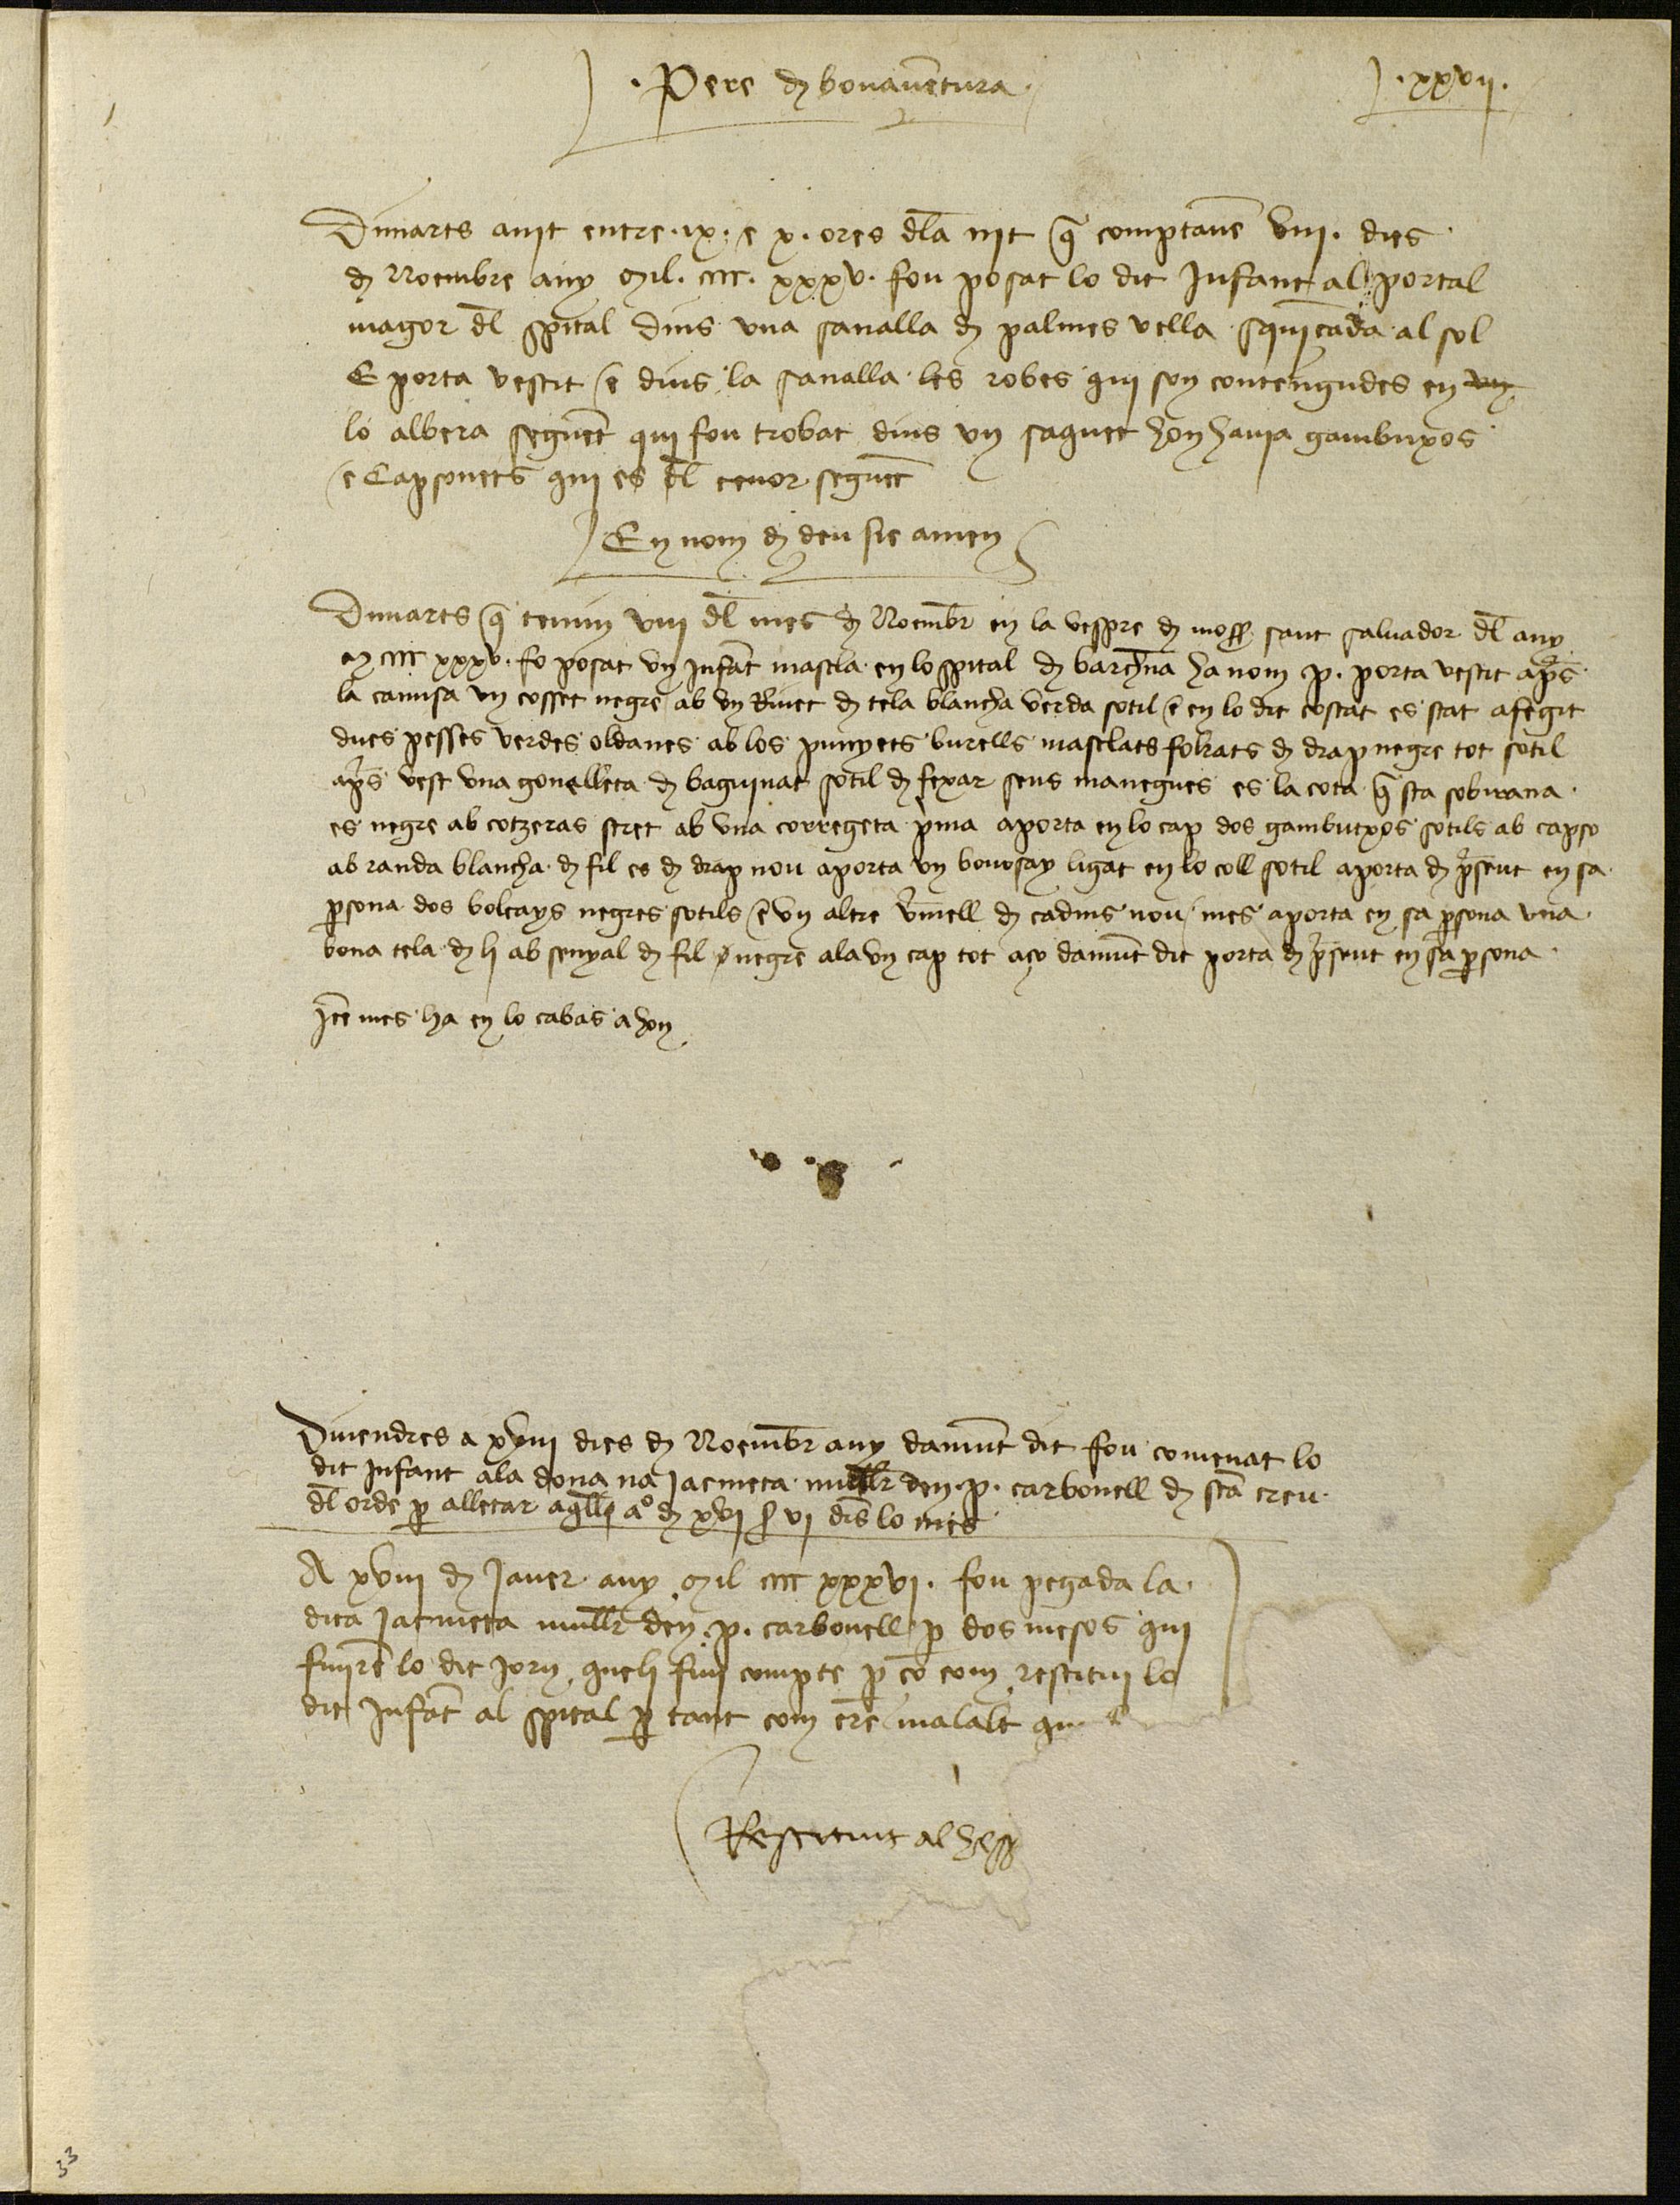 . Pere d bonaventura .
. xxvii .
Dimarts a nit entre . ix . e x . ores dla nit q comptavē viii . dies
d Noembre any Mil . cccc . xxxv . fou posat lo dit Infant al portal
major dl spital dins una sanalla d palmes vella squinçada al sol
E porta vestit e dins la sanalla les robes qui son contengudes en
lo albera seguēt qui fou trobat dins un saquet hon havia gambuxos
e Capsonets qui es dl tenor seguēt
En nom d deu sie amen
Dimarts q tenim viii dl mes d Noembr en la vespre d moss sant salvador dl any
M cccc xxxv . fo posat un infāt mascla en lo spital d barchna ha nom p . porta vestit aprs
la camisa un cosset negre ab un Rivet d tela blancha verda sotil e en lo dit costat es stat afegit
dues pesses verdes oldanes ab los punyets burells masclats folrats d drap negre tot sotil
aprs vest una gonelleta d baguinat sotil d fexar sens manegues es la cota q sta sobirana
es negre ab cotzeras stret ab una corregeta prima aporta en lo cap dos gambutxos sotils ab capso
ab randa blancha d fil es d drap nou aporta un bovosay ligat en lo coll sotil aporta d psent en sa
psona dos bolcays negres sotils e un altre vmell d cadins nou mes aporta en sa psona una
bona tela d li ab senyal d fil negre a la un cap tot aço damūt dit porta d psent en sa psona
Itē mes ha en lo cabas a hon
Divendres a xviii dies d Noembr any damūt dit fou comenat lo
dit infant ala dona na Jacmeta mullr den . p . carbonell d sta creu
dl orde p alletar aqll a º d xvi s vi ds lo mes
A xviii d Janer any Mil cccc xxxvi . fou pegada la
dita Jacmeta mullr den . p . carbonell p dos mesos qui
finirē lo dit jorn queli fiu compte p ço com restitui lo
dit Infāt al spital p tant com ere malalt
Restituit al hesp
33